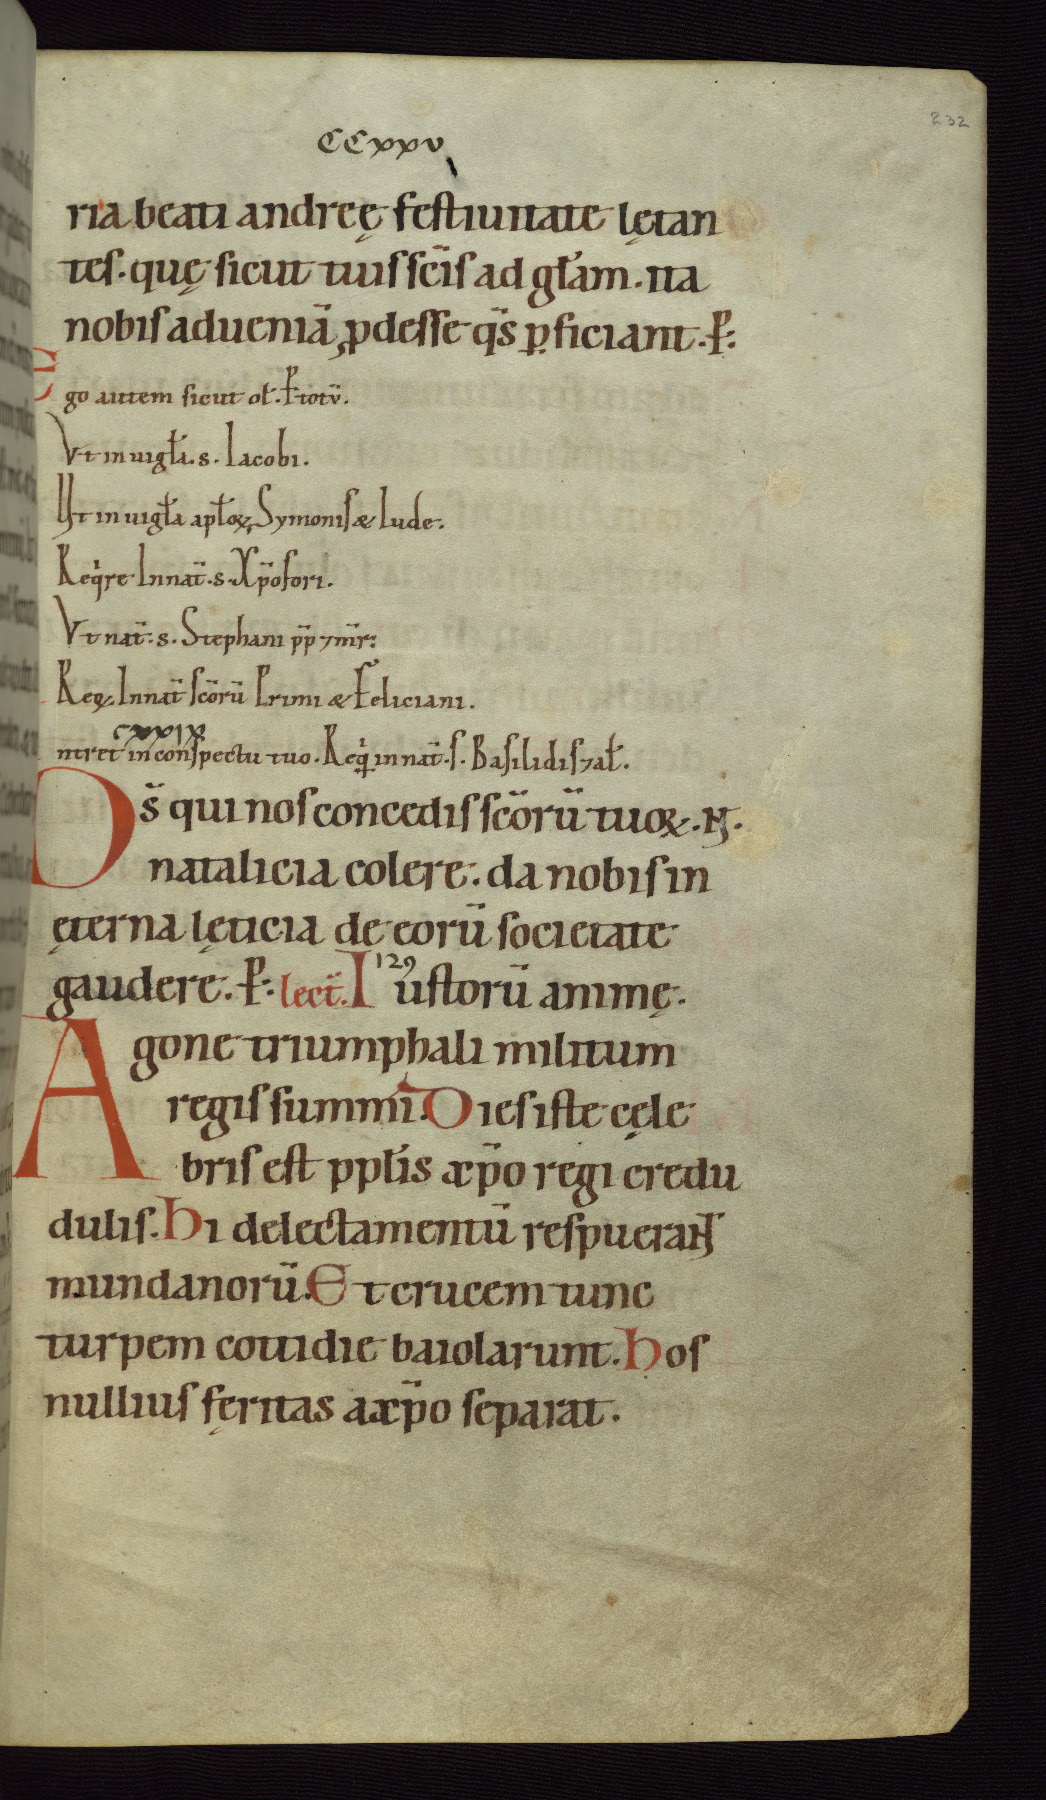 232
CCxxv
ria beati andreę festiuitate lętan
tes. quę sicut tuis sc̄is ad gl̄am. ita
nobis ad ueniā ꝓdesse qs̄ ꝑficiant. P̄:
Ego autem sicut ol̄. P̄ totū.
Vt in uigl̄a. s. Iacobi.
Vt in uigl̄a apl̄oꝝ Symonis & Iude.
Reqͥre In nat̄. s. Xp̄ofori.
Vt nat̄. s. Stephani pp̄ ⁊ mr̄:
Req̄. In nat̄ sc̄orū Primi & Feliciani.
cxxix
ntret in conspectu tuo. Reqͥ in nat̄. s. Basilidis ⁊ al̄.
Ds̄ qui nos concedis sc̄orū tuoꝝ. N̄.
natalicia colere: da nobis in
ęterna lęticia de eorū societate
gaudere. P̄: lect̄. I 129 ustorū animę.
Agone triumphali militum
regis summi. Dies iste cęle
bris est ppl̄is xp̄o regi credu
dulis. Hi delectamentū respuerant
mundanorū. Et crucem tunc
turpem cottidie baiolarunt. Hos
nullius fęritas a xp̄o separat.